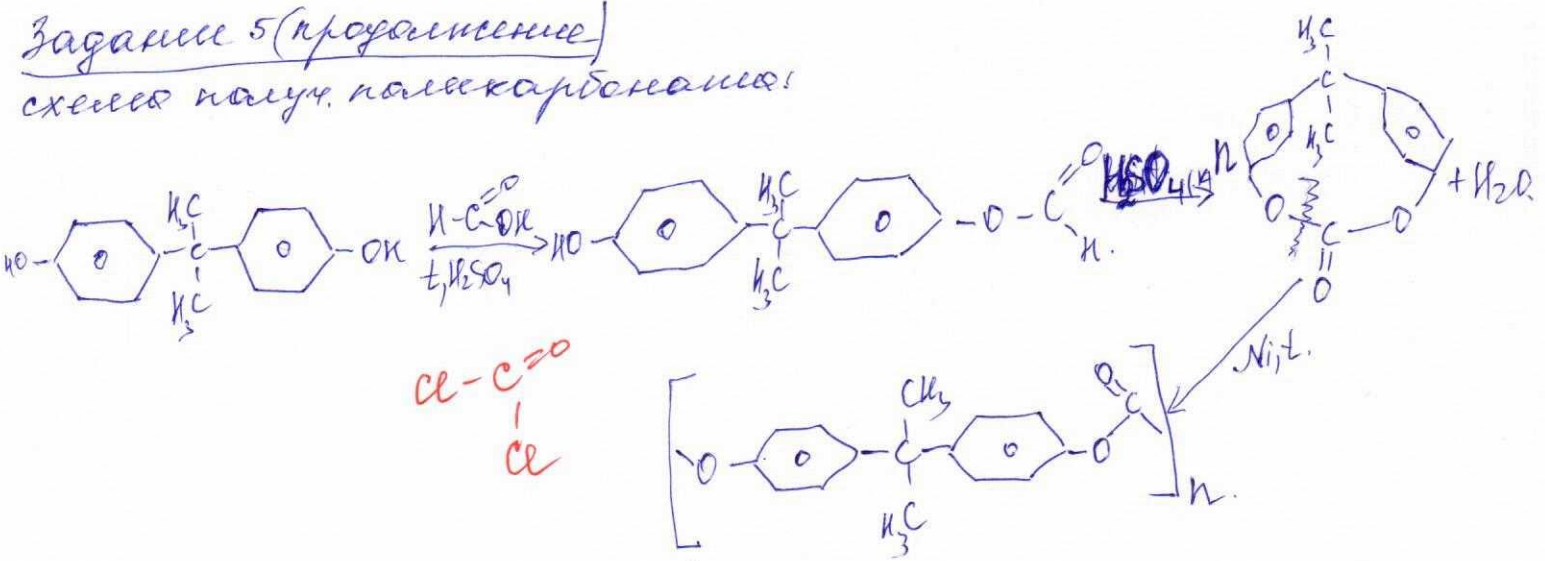 Задание 5 (продолжение)
схема получ. поликарбоната:
HO- H3C C H3C -OH H-C=O OH t, H2SO4 HO- H3C C H3C -O-C=O H. H2SO4(к) n H3C C H3C O C O O + H2O.
Ni, t.
Cl-C=O Cl
[ O- CH3 C H3C -O C O ] n.